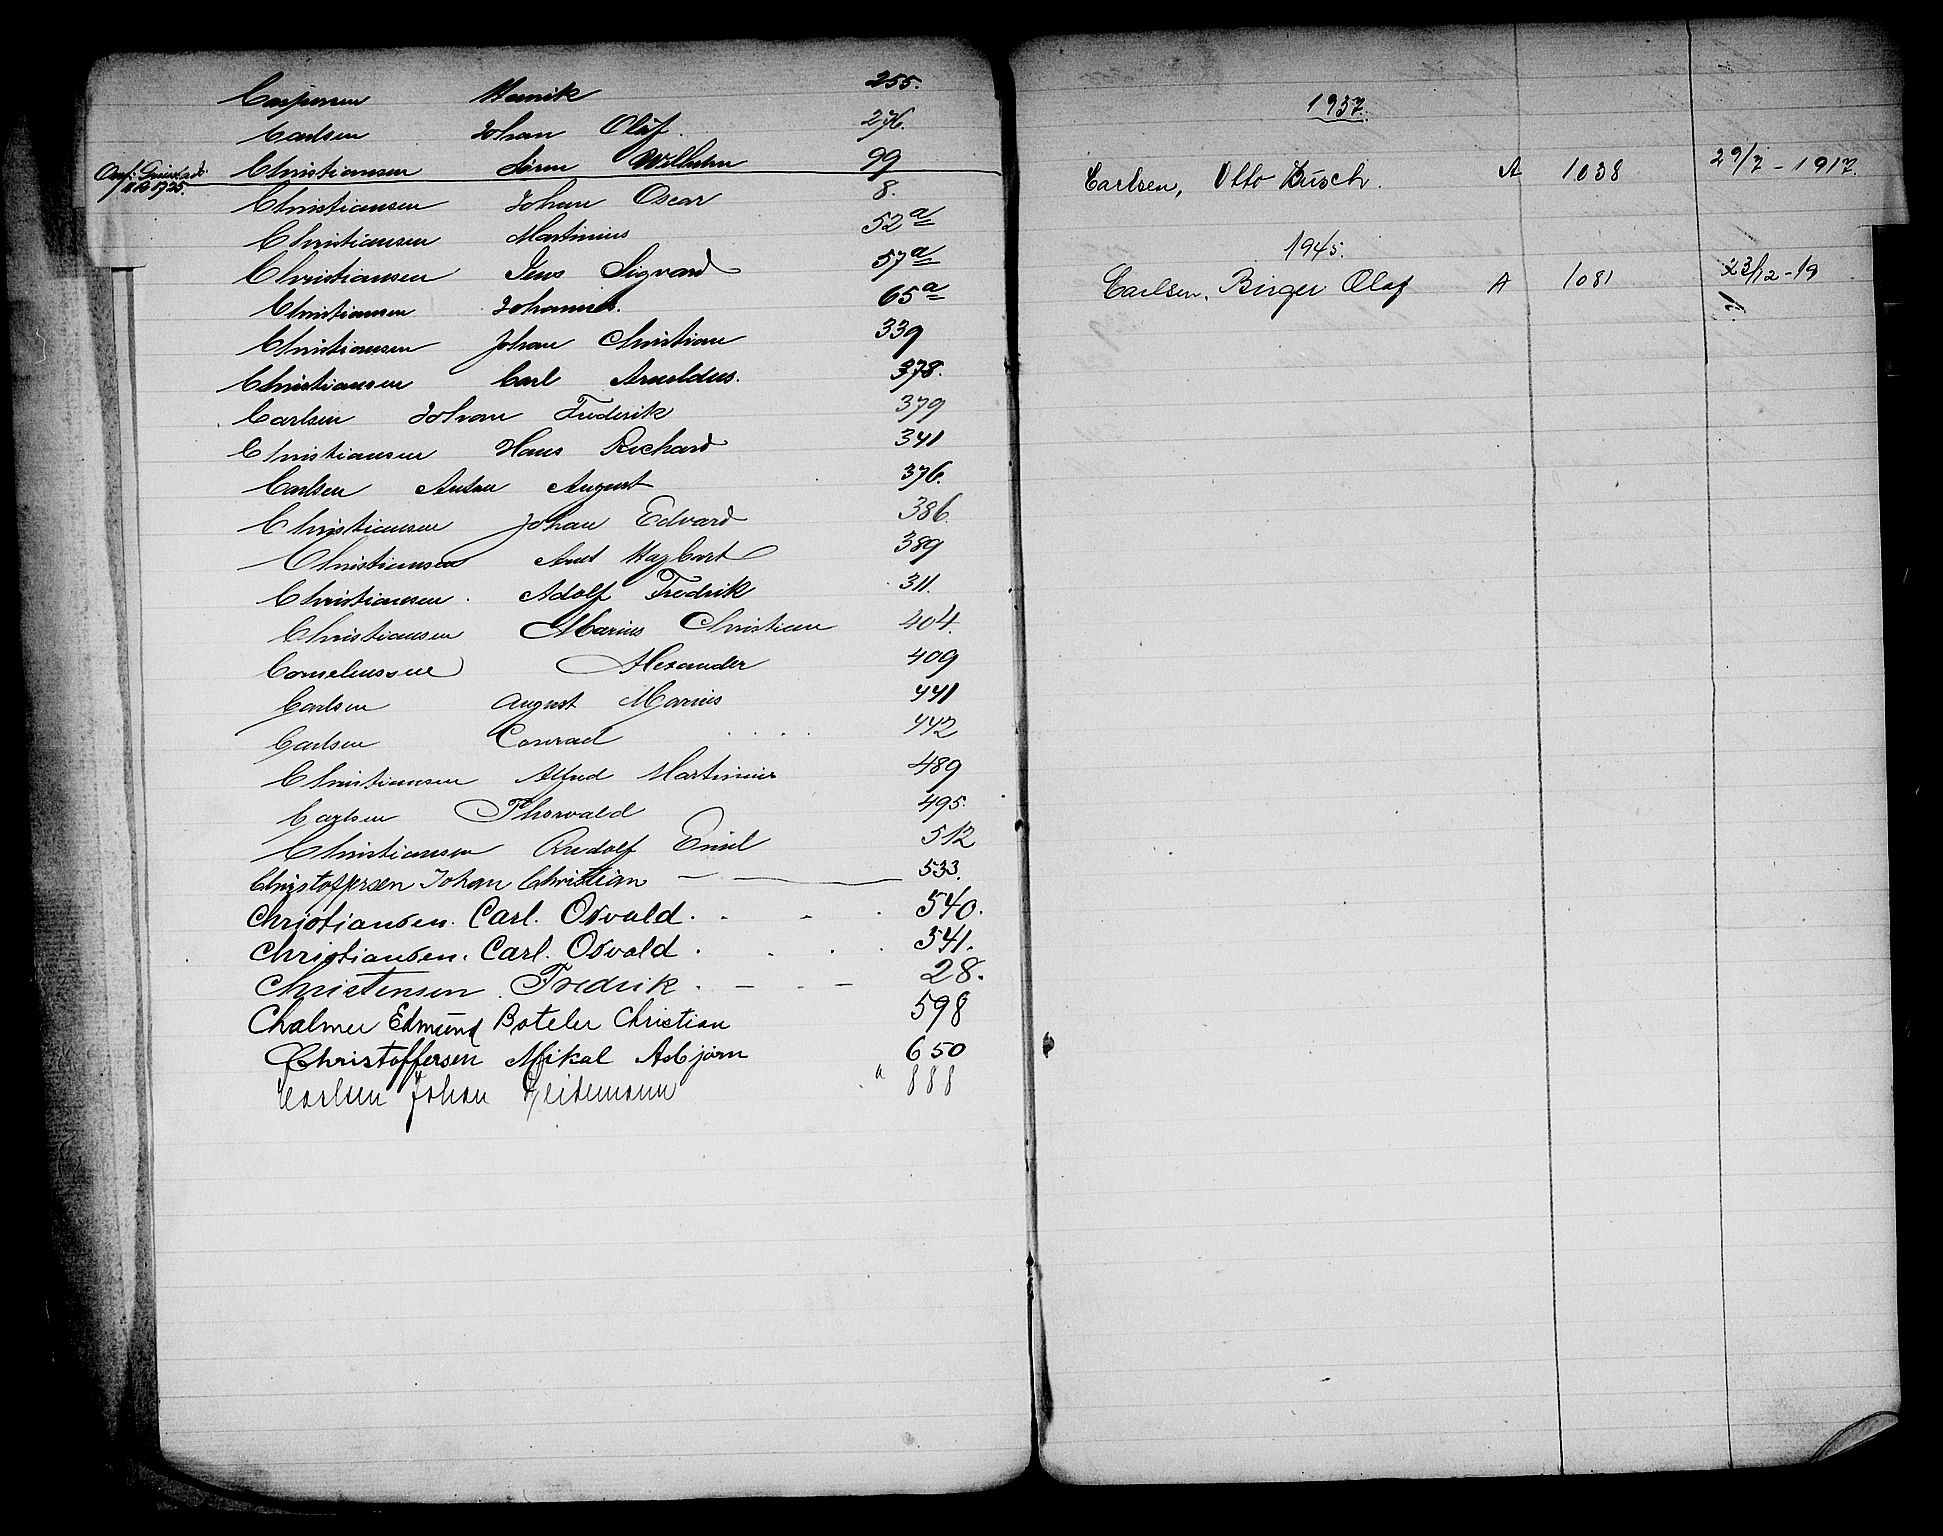 Caspersen Henrik 255.
Carlsen Johan Olaf. 276.
Christiansen Søren Wilhelm 99
Christiansen Johan Oscar 8.
Christiansen Martinius 52 a
Christiansen Jens Sigvard 57 a
Christiansen Johannes. 65 a
Christiansen Johan Christian 339
Christiansen Carl Arnoldus. 378.
Carlsen Johan Frederik 379
Christiansen Hans Richard 341
Carlsen Anton August 376.
Christiansen Johan Edvard 386.
Christiansen Hagbart 389
Christiansen. Adolf Fredrik 311.
Christiansen Marius Christian 404.
Corneliussen Alexander 409
Carlsen August Marius 441
Carlsen Conrad 442
Christiansen Alfred Martinius 489
Carlsen Thorvald 495.
Christiansen Rudolf Emil 512
Christoffersen Johan Christian — 533.
Christiansen. Carl. Osvald. 540.
Christiansen. Carl. Osvald. 541.
Christensen. Fredrik. 28.
Chalmer Edmund Boteler Christian 598
Christoffersen Mikal Asbjørn 650
Carlsen Johan Heidemann " 888
1937.
Carlsen, Otto Busch. A 1038 29/7 - 1917.
1945.
Carlsen. Birger Olaf A 1081 23/12 - 19